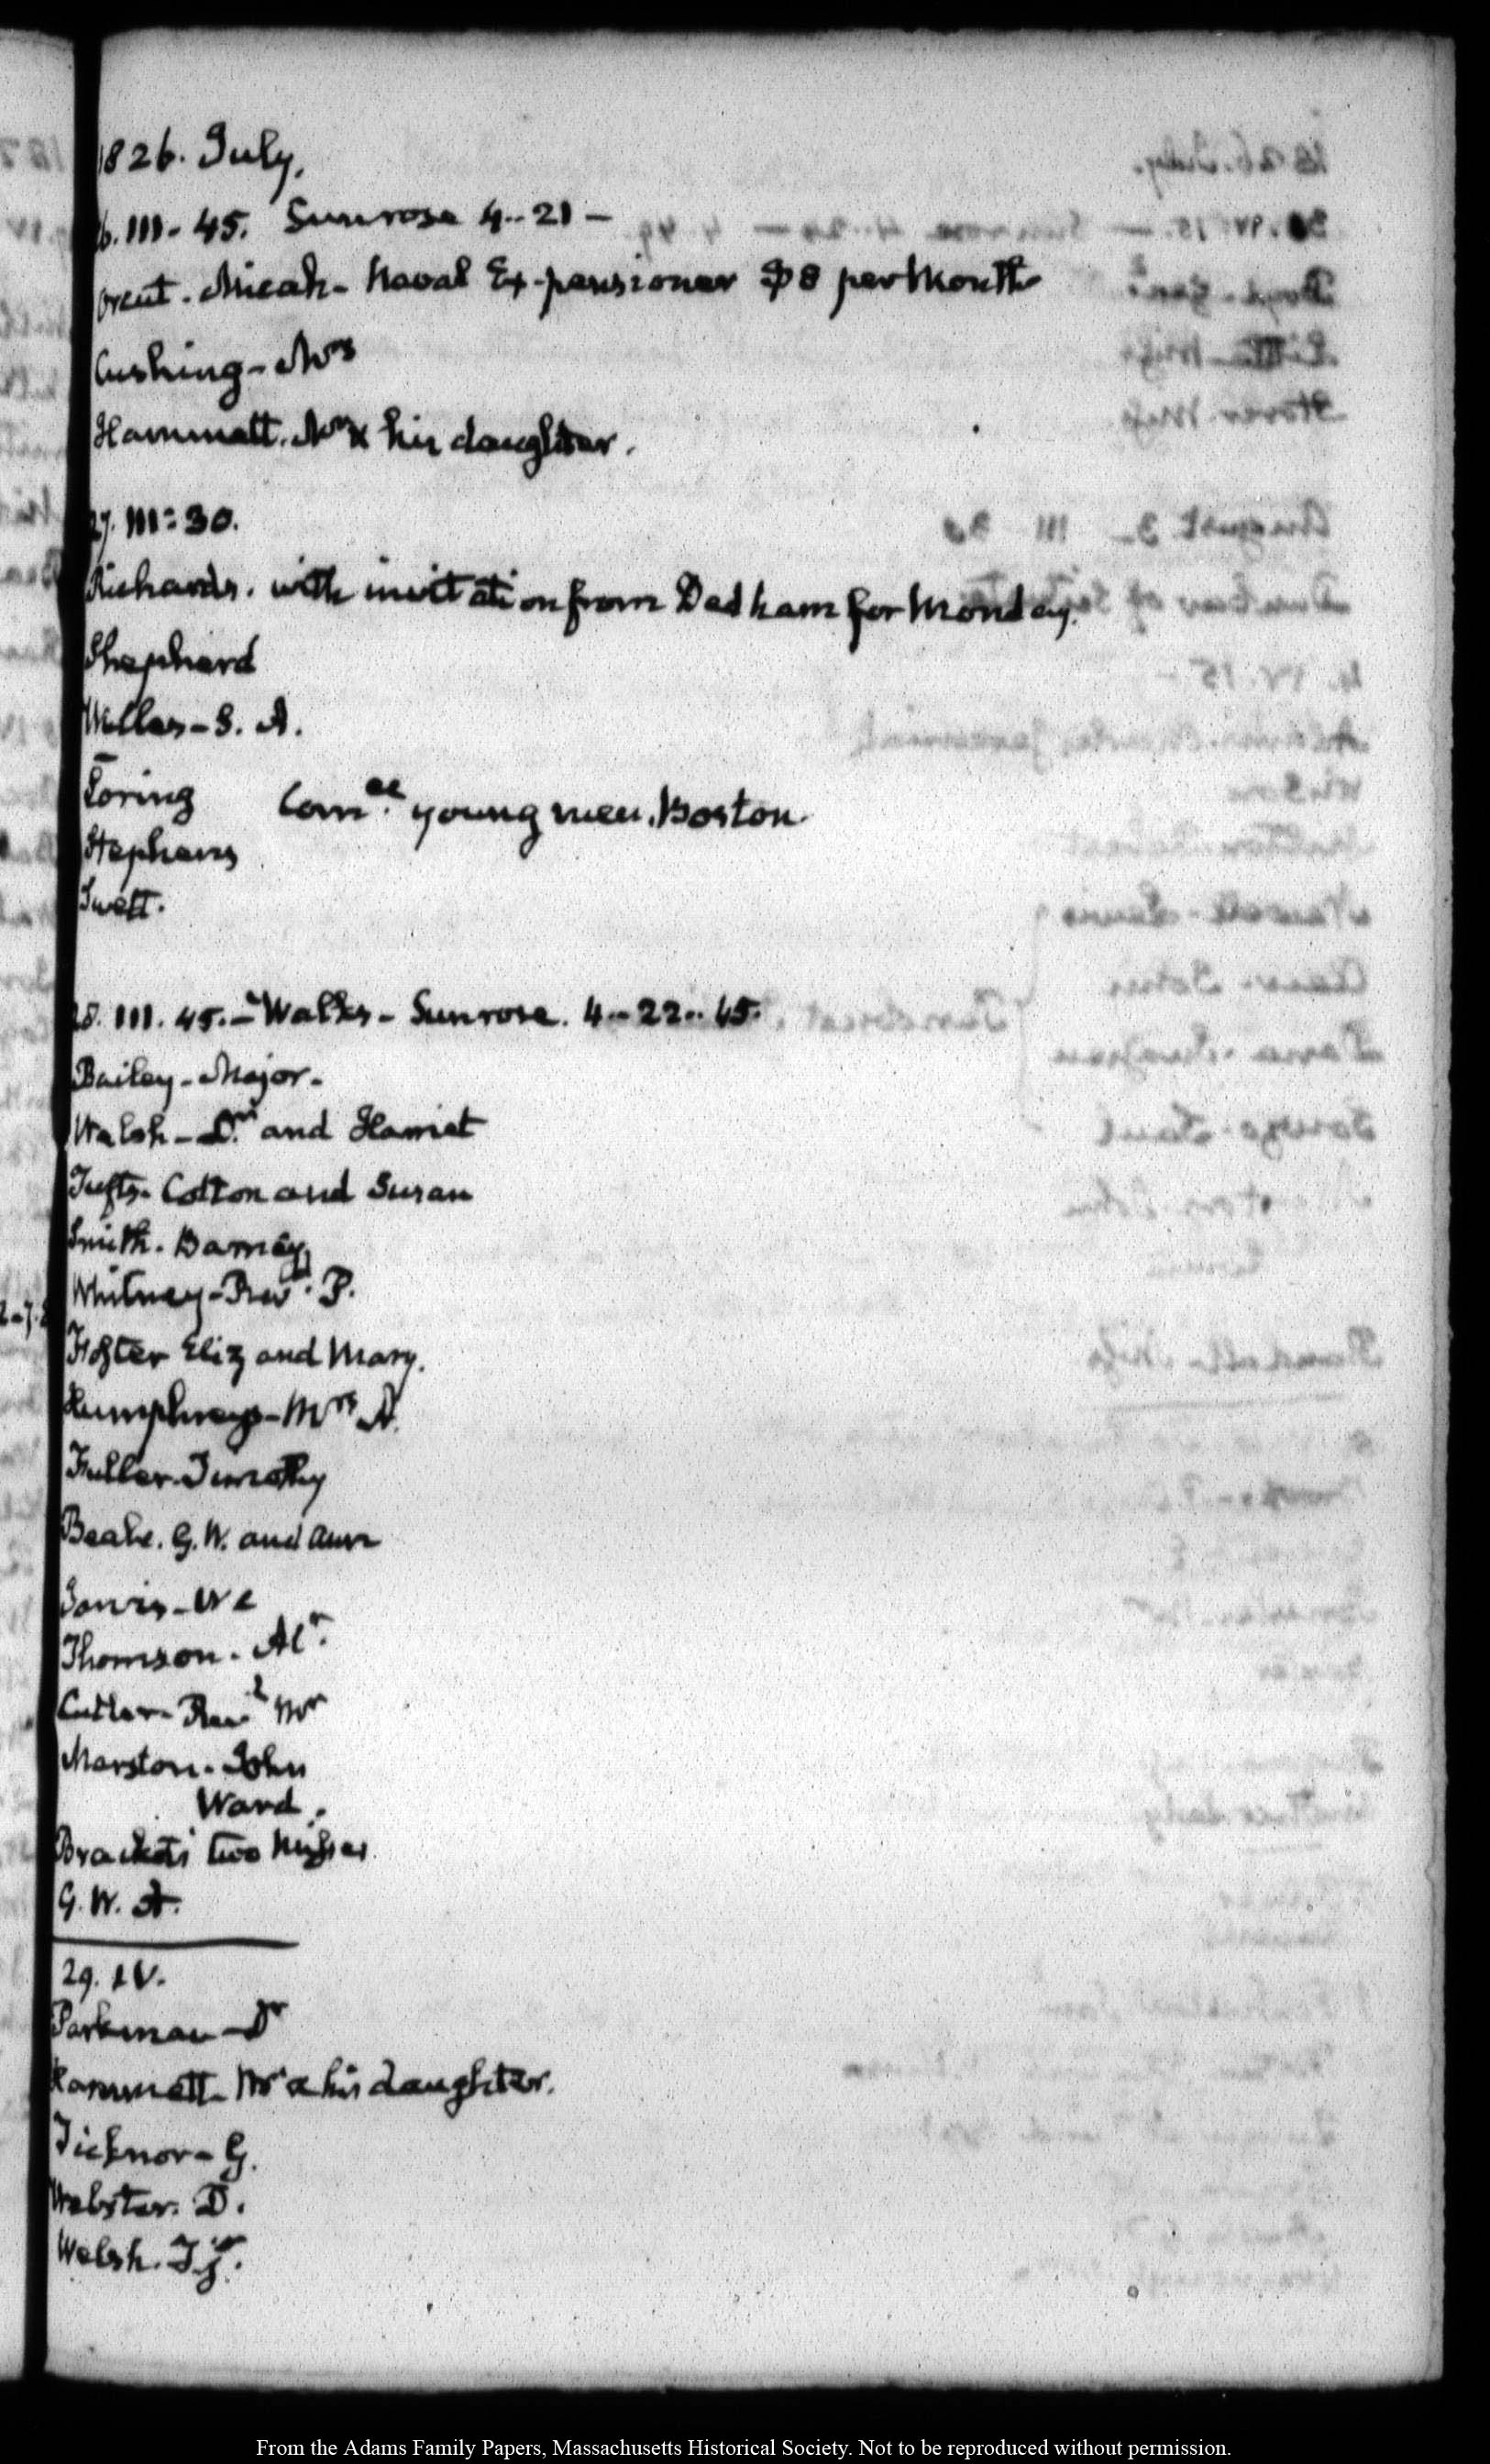 1826. July.
26. III. 45. Sunrose 4..21 —
Orcut. Micah - Naval Ex-pensioner $8 per Month
Cushing - Mrs
Hammatt. Mr & his daughter.
27. III: 30.
Richards. with invitation from Dedham for Monday.
Shephard
Welles - S. A.
Loring
Comee. young men. Boston.
Stephens
Swett.
28. III. 45. - Walks - Sunrose. 4..22..45.
Bailey - Major.
Walsh - Dr. and Harriet
Tufts. Cotton and Susan
Smith. Barney
Whitney - Revd. P.
Foster Eliz and Mary.
Humphreys - Mrs A.
Fuller. Timothy
Beale. G. W. and Ann
Jarvis - W C
Thomson. Alr.
Cutler - Revd Mr
Marston. John
Ward.
Brackets two Misses
G. W. A.
29. IV.
Parkman - Dr
Hammatt - Mr & his daughter.
Ticknor - G.
Webster. D.
Welsh. T. jr.
From the Adams Family Papers, Massachusetts Historical Society. Not to be reproduced without permission.